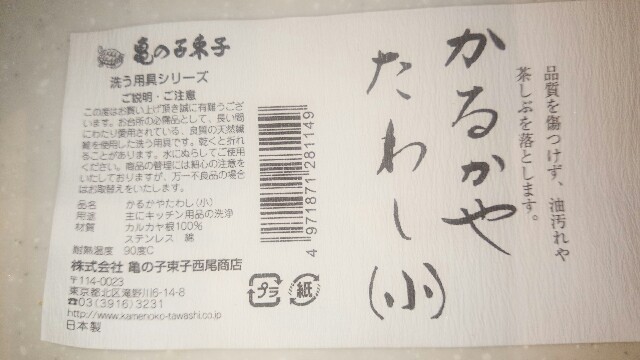 亀の子束子
洗う用具シリーズ
ご説明・ご注意
この度はお買い上げ頂き誠に有難うござ
います。お台所の必需品として、長い間
にわたり愛用されている、良質の天然繊
維を使用した洗う用具です。乾くと折れ
ることがあります。水にぬらしてご使用
ください。商品の管理には細心の注意を
いたしておりますが、万一不良品の場合
はお取替えをいたします。
品名 かるかやたわし(小)
用途 主にキッチン用品の洗浄
材質 カルカヤ根100%
ステンレス 綿
耐熱温度 90度C
株式会社 亀の子束子西尾商店
〒114-0023
東京都北区滝野川6-14-8
☎03(3916)3231
http://www.kamenoko-tawashi.co.jp
日本製
4 971871 281149
プラ
紙
かるかや
たわし(小)
品質を傷つけず、油汚れや
茶しぶを落とします。